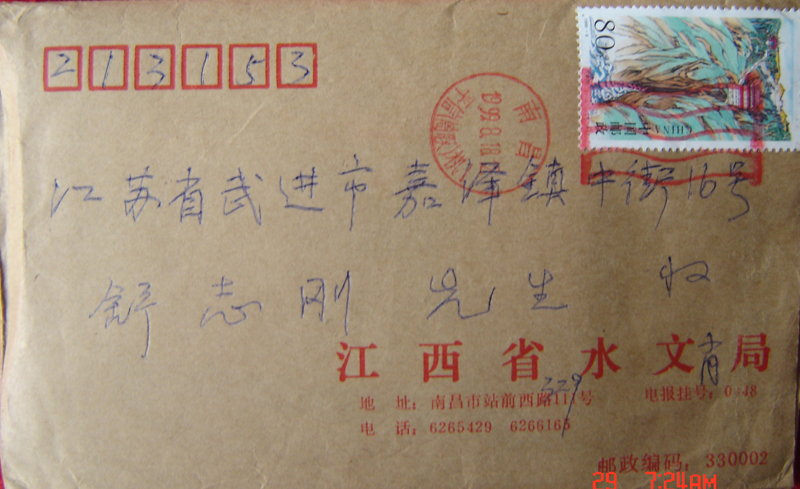 213153
80
中国邮政
CHINA
南昌
江苏省武进市嘉泽镇中街16号
舒志刚 先生 收
江西省水文局
肖
329
地 址：南昌市站前西路111号 电报挂号：0348
电 话：6265429 6266165
邮政编码：330002
29 7:24AM